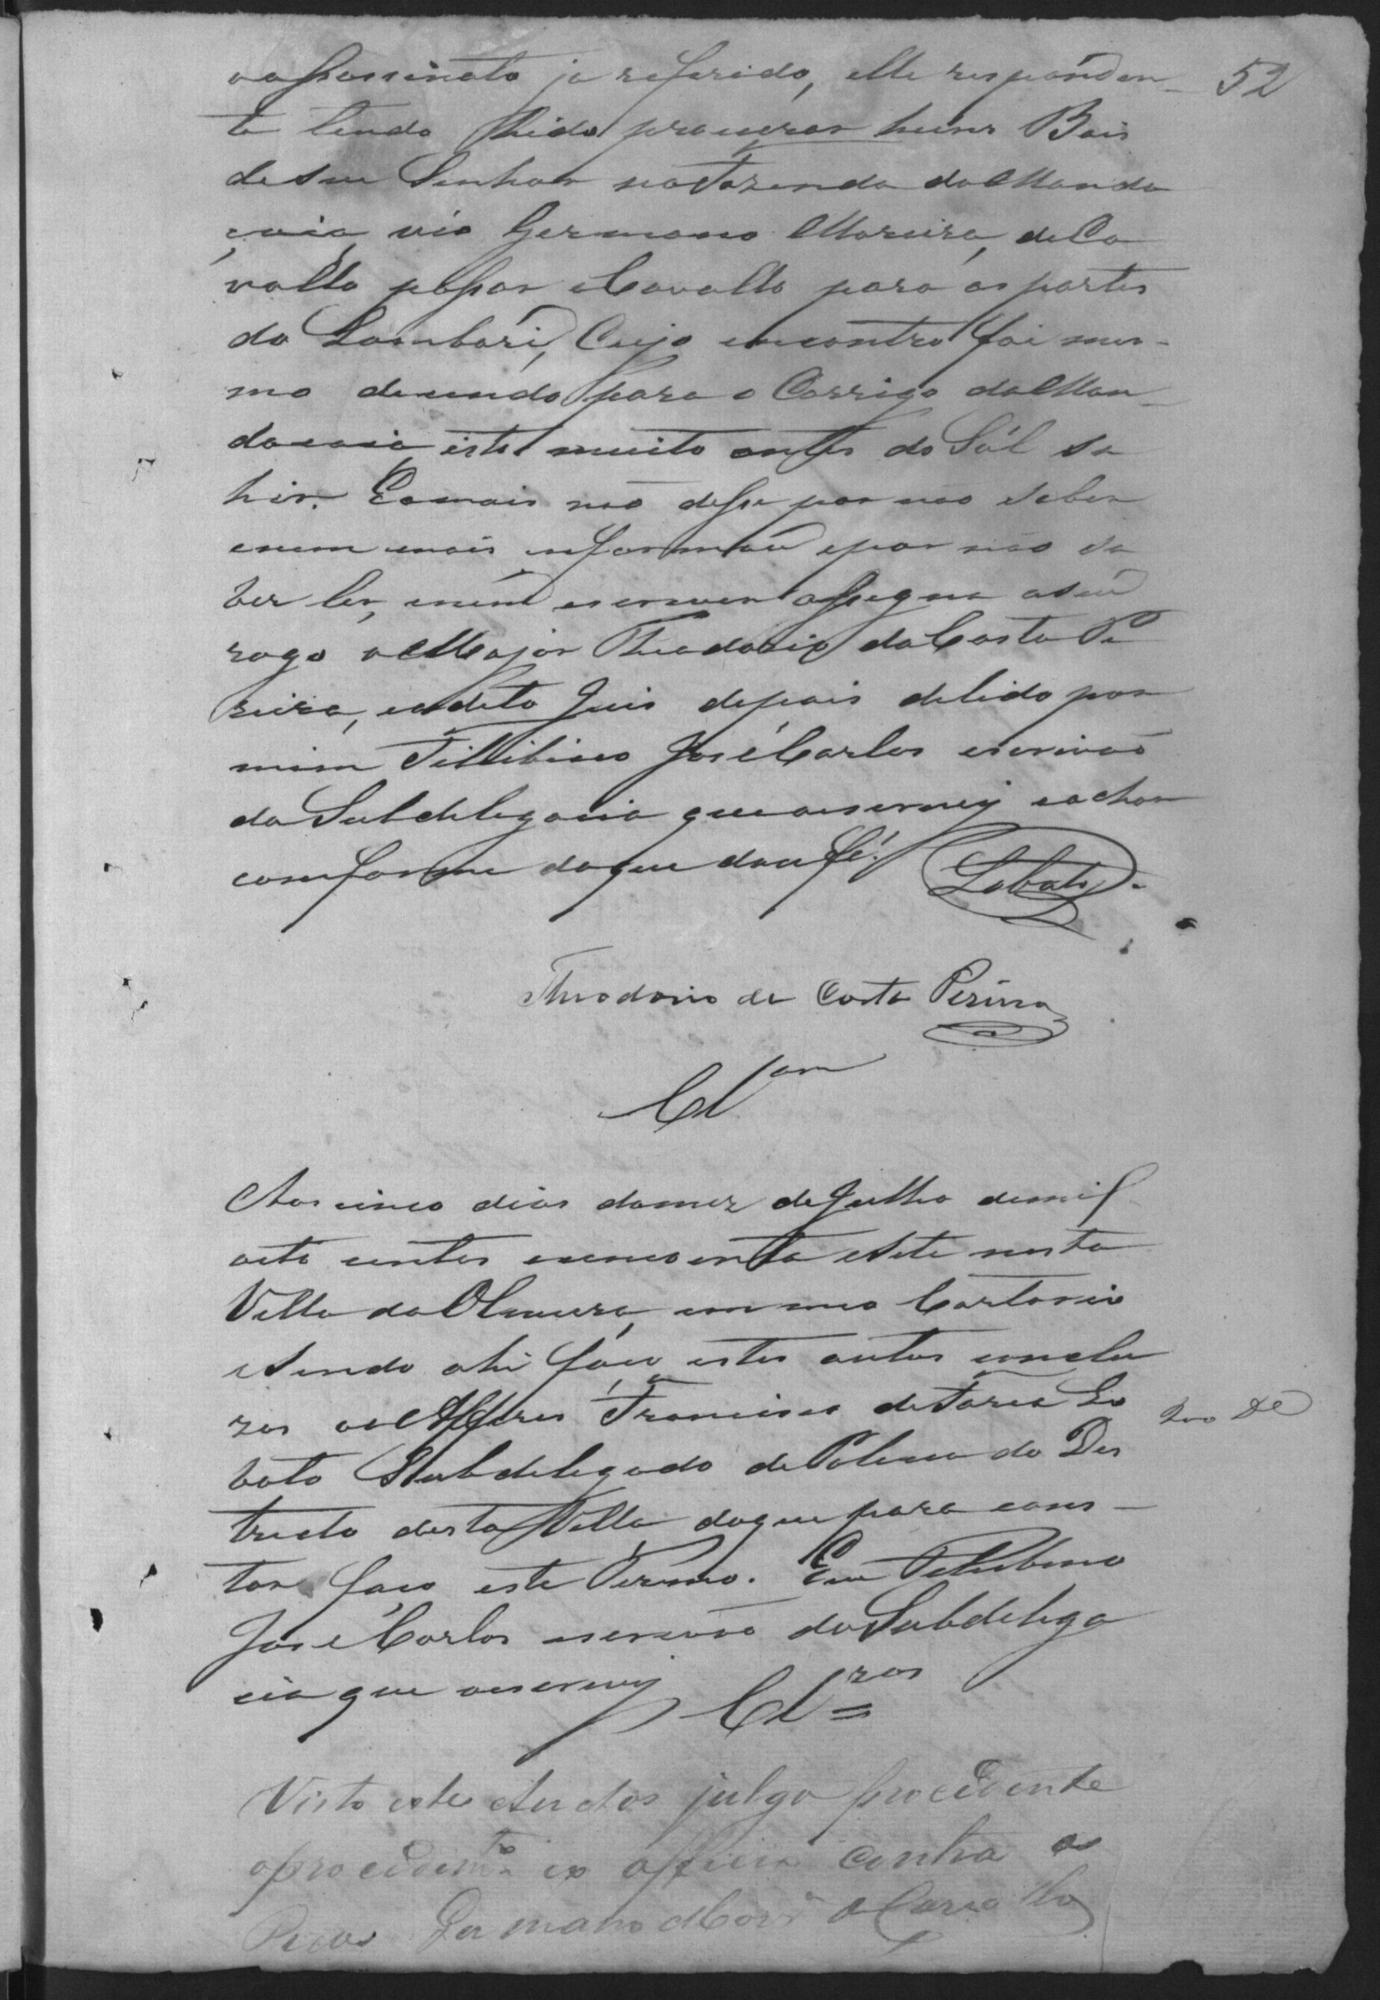 oassassinato ja referido, elle responden- 52
te tendo hido procurar huns Bois
de seu Senhor na Fazenda da Manda
çaia, vio Germano Moreira, de Ca
valho passar aCavallo para as partes
do Lambari, Cujo encontro foi mes-
mo decendo para o Corrigo da Man-
dacaia, isto muito antes do Sol sa
hir. Eamais não disse por não saber
enem mais epor não sa
ber ler, enem escrever assigna aseu
rogo oMajor Theodozio da Costa Pe
reira, eodito Juis depois delido por
mim José Carlos escrivão
da Subdelegacia queaescrevy eachar
conforme doque dou fé. Lobato.
Theodosio da Costa Pereira
Clam
Aos cinco dias domez de Julho demil
oito centos ecincoenta esete nesta
Villa da em meu Cartorio
esendo ahi faço estes autos conclu
zos aoAlferes Francisco de Faria Lo
bato Subdelegado dePolicia do Des
tricto desta Villa, doque para cons-
tar faço este Termo. Eu
José Carlos escrivão da Subdelega
cia que oescrevy Clzos
Visto estes Autos julgo procedente
oprocedimto ex officio contra os
Reos Germano Carvalho